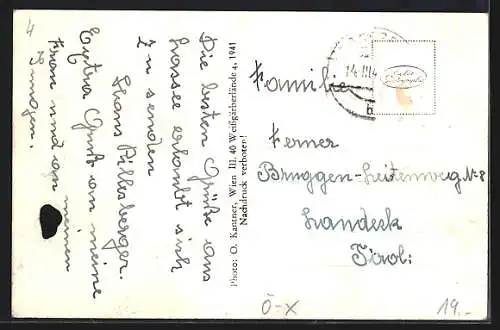 4
Die besten Grüße aus
hassee erlaubt sich
zu senden
Hans Pillesberger.
Extra Gruß an meine
Frau und an meinen
Jungen.
Photo: O. Kantner, Wien III, 40 Weißgärberlände 4, 1941
Nachdruck verboten!
14. III. 4
b
Familie
Ferner
Bruggen-Leitenweg N: 8
Landeck
Tirol:
Ö-X
19.-